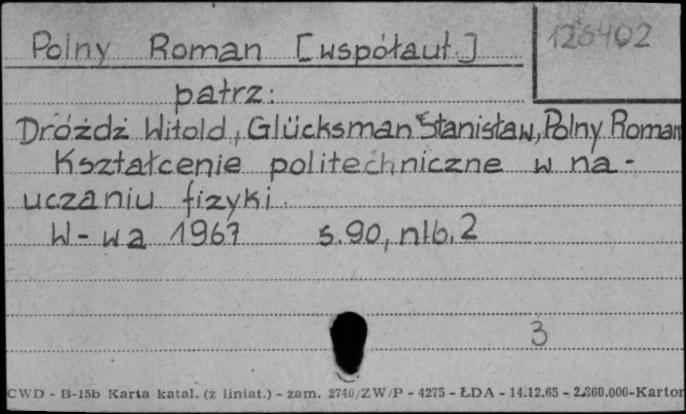 Polny Roman [współaut.]
126402
patrz:
Dróżdż Witold, Glücksman Stanisław, Polny Roman
Kształcenie politechniczne w na-
uczaniu fizyki.
W-wa 1967 s. 90, nlb. 2
3
CWD - B-15b Karta katal. (z liniat.) - zam. 2740/ZW/P - 4275 - ŁDA - 14.12.65 - 2.360.000-Karton